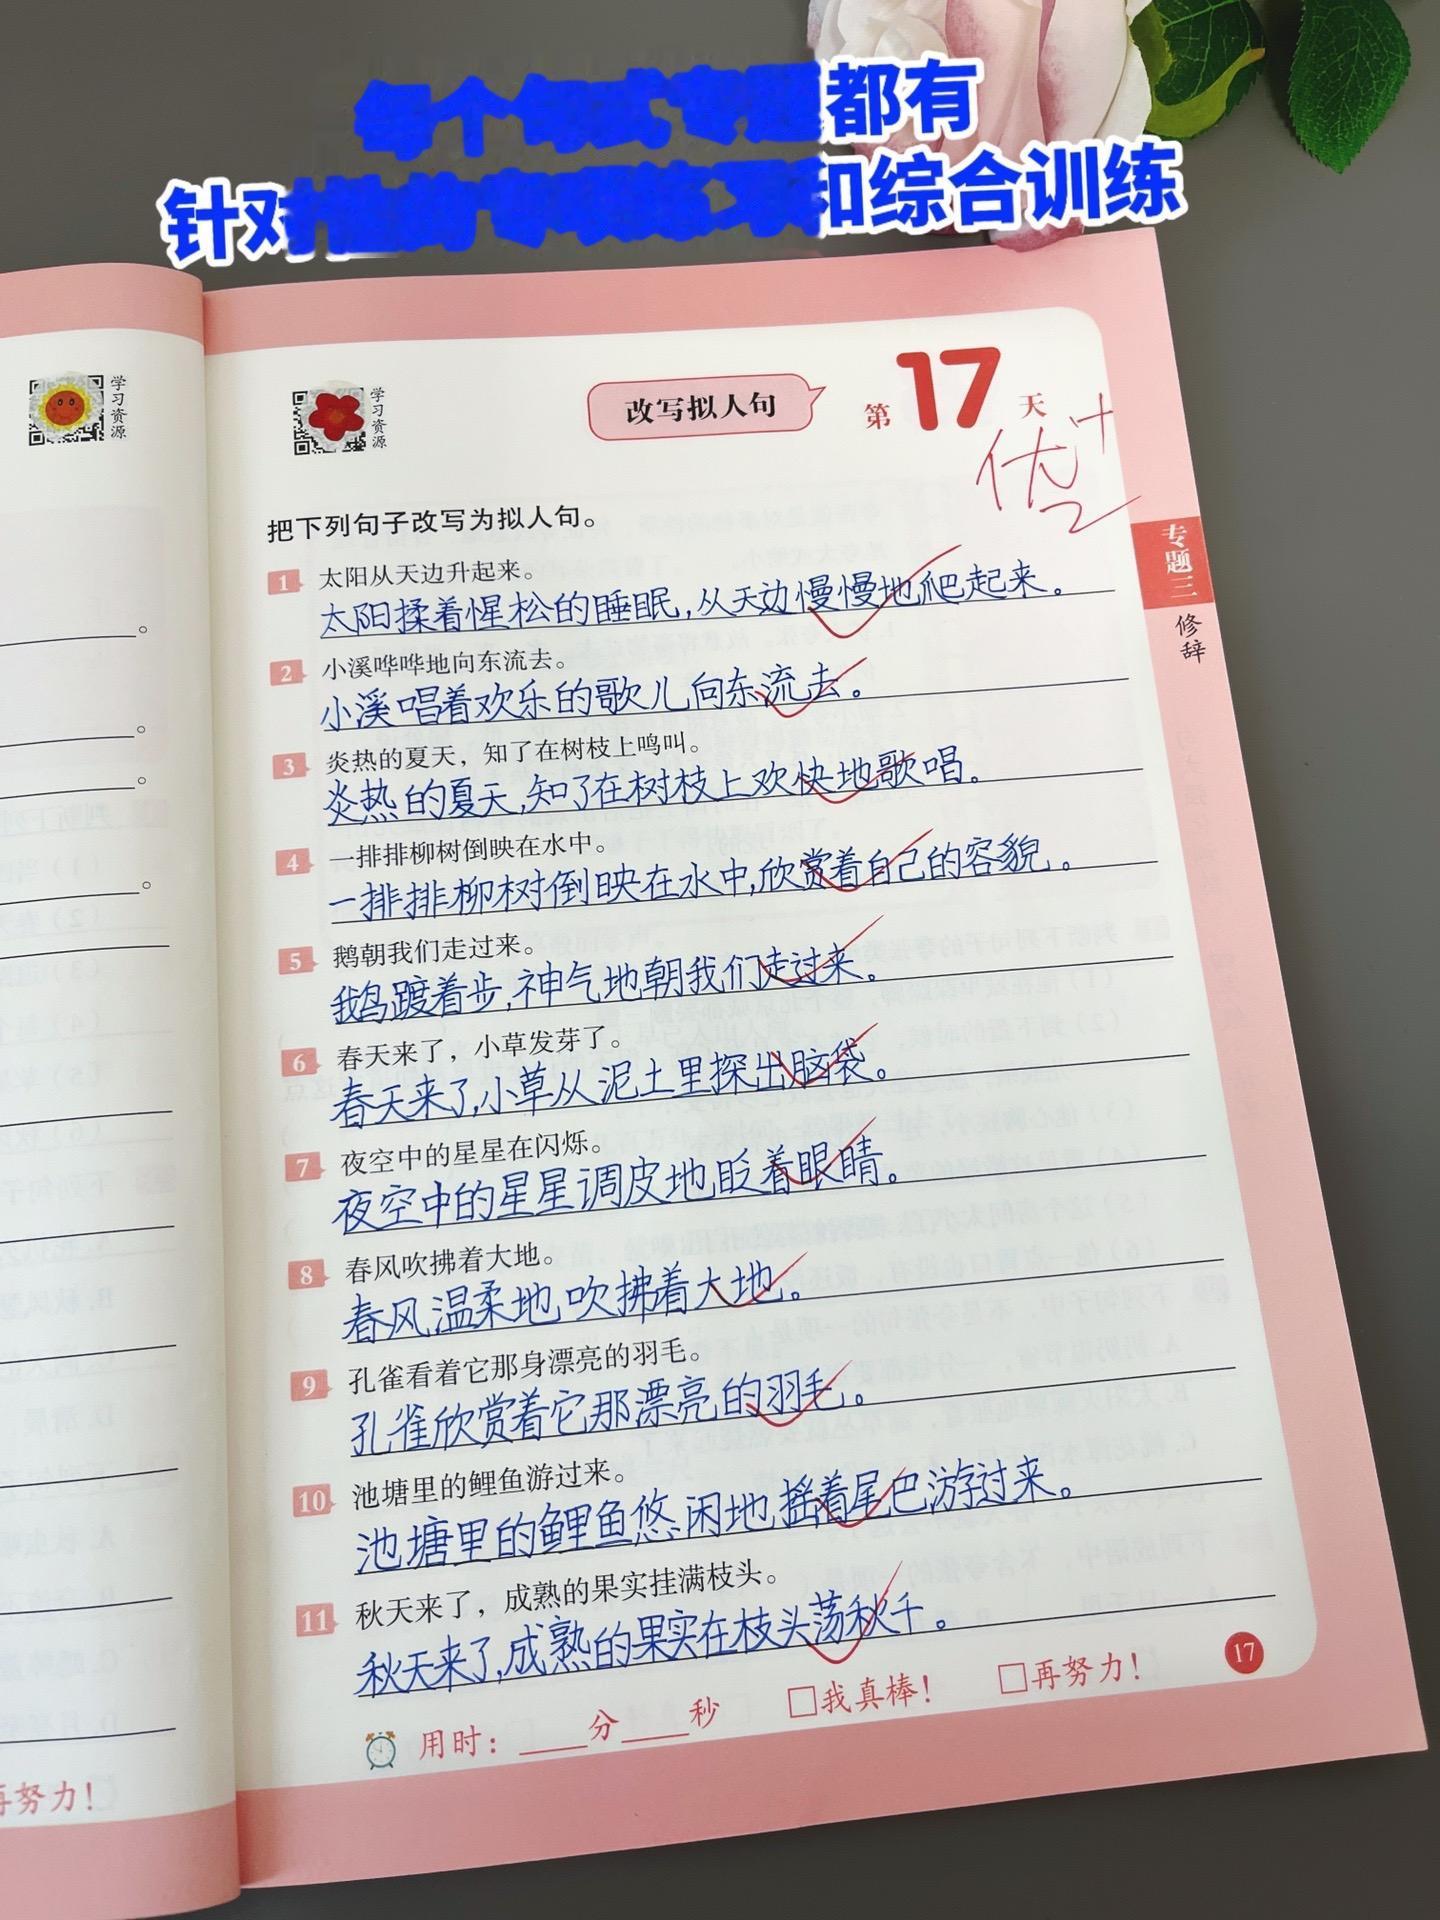 都有
针对
和综合训练
学习资源
学习资源
改写拟人句
第17天
优+
专题三
修辞
把下列句子改写为拟人句。
1 太阳从天边升起来。
太阳揉着惺松的睡眠,从天边慢慢地爬起来。
2 小溪哗哗地向东流去。
小溪唱着欢乐的歌儿向东流去。
3 炎热的夏天，知了在树枝上鸣叫。
炎热的夏天,知了在树枝上欢快地歌唱。
4 一排排柳树倒映在水中。
一排排柳树倒映在水中,欣赏着自己的容貌。
5 鹅朝我们走过来。
鹅踱着步,神气地朝我们走过来。
6 春天来了，小草发芽了。
春天来了,小草从泥土里探出脑袋。
7 夜空中的星星在闪烁。
夜空中的星星调皮地眨着眼睛。
8 春风吹拂着大地。
春风温柔地吹拂着大地。
9 孔雀看着它那身漂亮的羽毛。
孔雀欣赏着它那漂亮的羽毛。
10 池塘里的鲤鱼游过来。
池塘里的鲤鱼悠闲地摇着尾巴游过来。
11 秋天来了，成熟的果实挂满枝头。
秋天来了,成熟的果实在枝头荡秋千。
用时：____分____秒 □我真棒！ □再努力！
17
再努力！